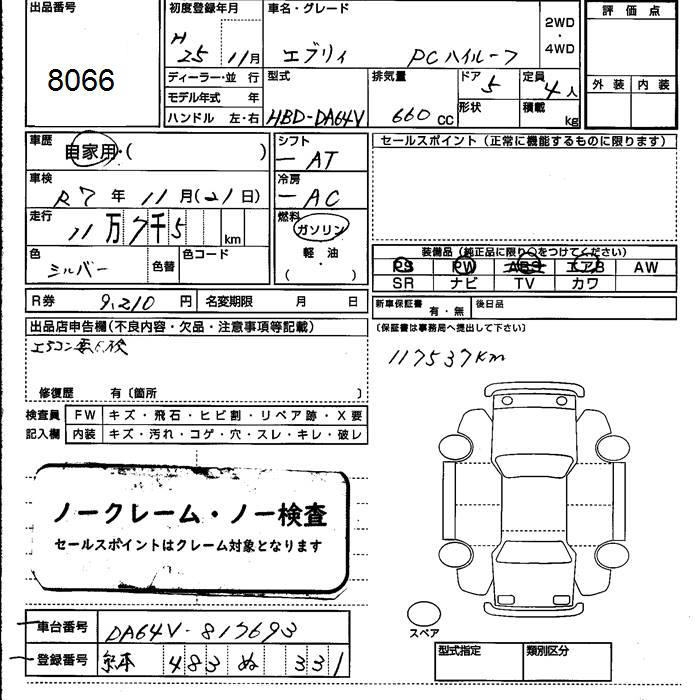 出品番号
8066
初度登録年月
H 25 11月
車名・グレード
エブリィ PCハイルーフ
2WD
・
4WD
評価点
外装 内装
ディーラー・並行
モデル年式 年
ハンドル 左・右
型式
HBD-DA64V
排気量
660 cc
ドア
5
形状
定員
4人
積載
kg
車歴
自家用・( )
車検
R7年11月(21日)
走行
11万7千5 km
色
シルバー
色替
色コード
シフト
AT
冷房
AC
燃料
ガソリン
軽油
( )
セールスポイント（正常に機能するものに限ります）
装備品（純正品に限り○をつけてください）
PS PW ABS エアB AW
SR ナビ TV カワ
R券 9,210 円 名変期限 月 日
新車保証書 有・無 後日品
〔保証書は事務局へ提出して下さい〕
出品店申告欄(不良内容・欠品・注意事項等記載)
修復歴 有〔箇所 〕
117537km
検査員 FW キズ・飛石・ヒビ割・リペア跡・X要
記入欄 内装 キズ・汚れ・コゲ・穴・スレ・キレ・破レ
ノークレーム・ノー検査
セールスポイントはクレーム対象となります
車台番号 DA64V-817693
登録番号 483 ぬ 331
スペア
型式指定 類別区分